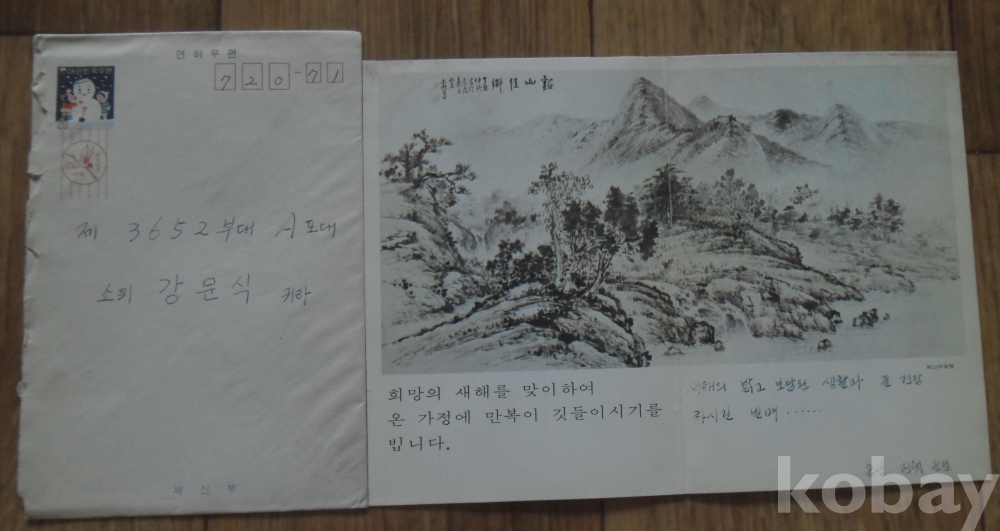 연하우편
대한민국우편
720-71
제 3652부대 A포대
소위 강문식 귀하
체신부
谿山佳鄕
희망의 새해를 맞이하여
온 가정에 만복이 깃들이시기를
빕니다.
새해의 밝고 보람된 생활과 늘 건강
하시길 빌며······
kobay